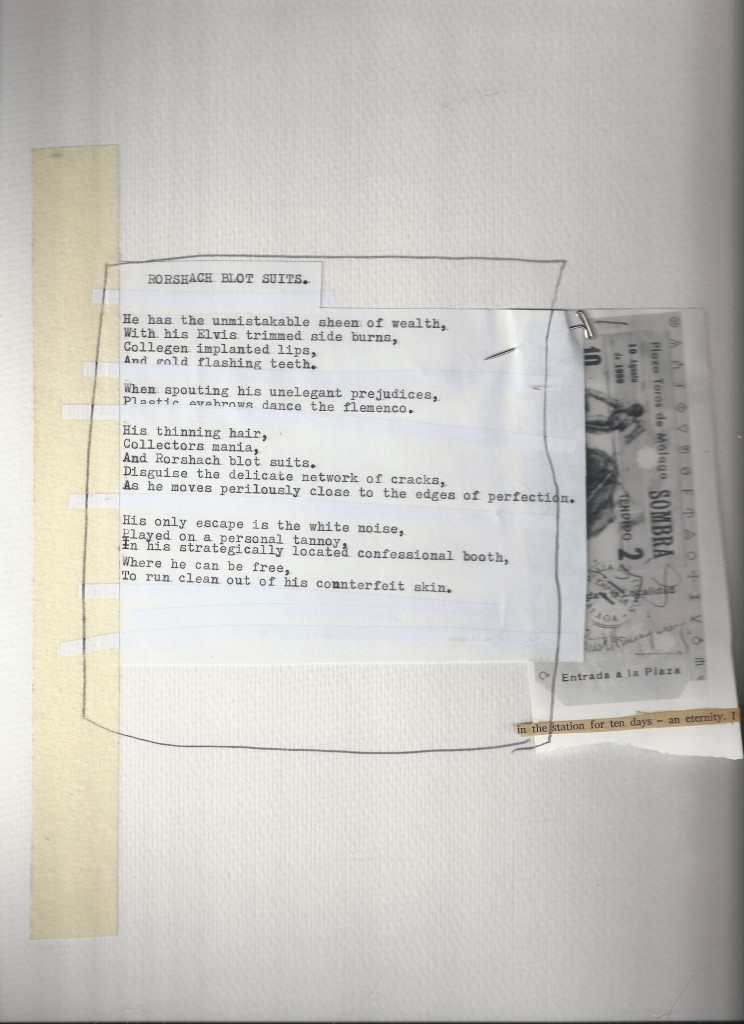 RORSHACH BLOT SUITS.
He has the unmistakable sheen of wealth,
With his Elvis trimmed side burns,
Collegen implanted lips,
And gold flashing teeth.
When spouting his unelegant prejudices,
Plastic eyebrows dance the flemenco.
His thinning hair,
Collectors mania,
And Rorshach blot suits.
Disguise the delicate network of cracks,
As he moves perilously close to the edges of perfection.
His only escape is the white noise,
Played on a personal tannoy,
In his strategically located confessional booth,
Where he can be free,
To run clean out of his counterfeit skin.
Plaza Toros de Málaga
10 Agosto
de 1989
10
SOMBRA
TENDIDO 2
Localidad
Entrada a la Plaza
in the station for ten days – an eternity. I